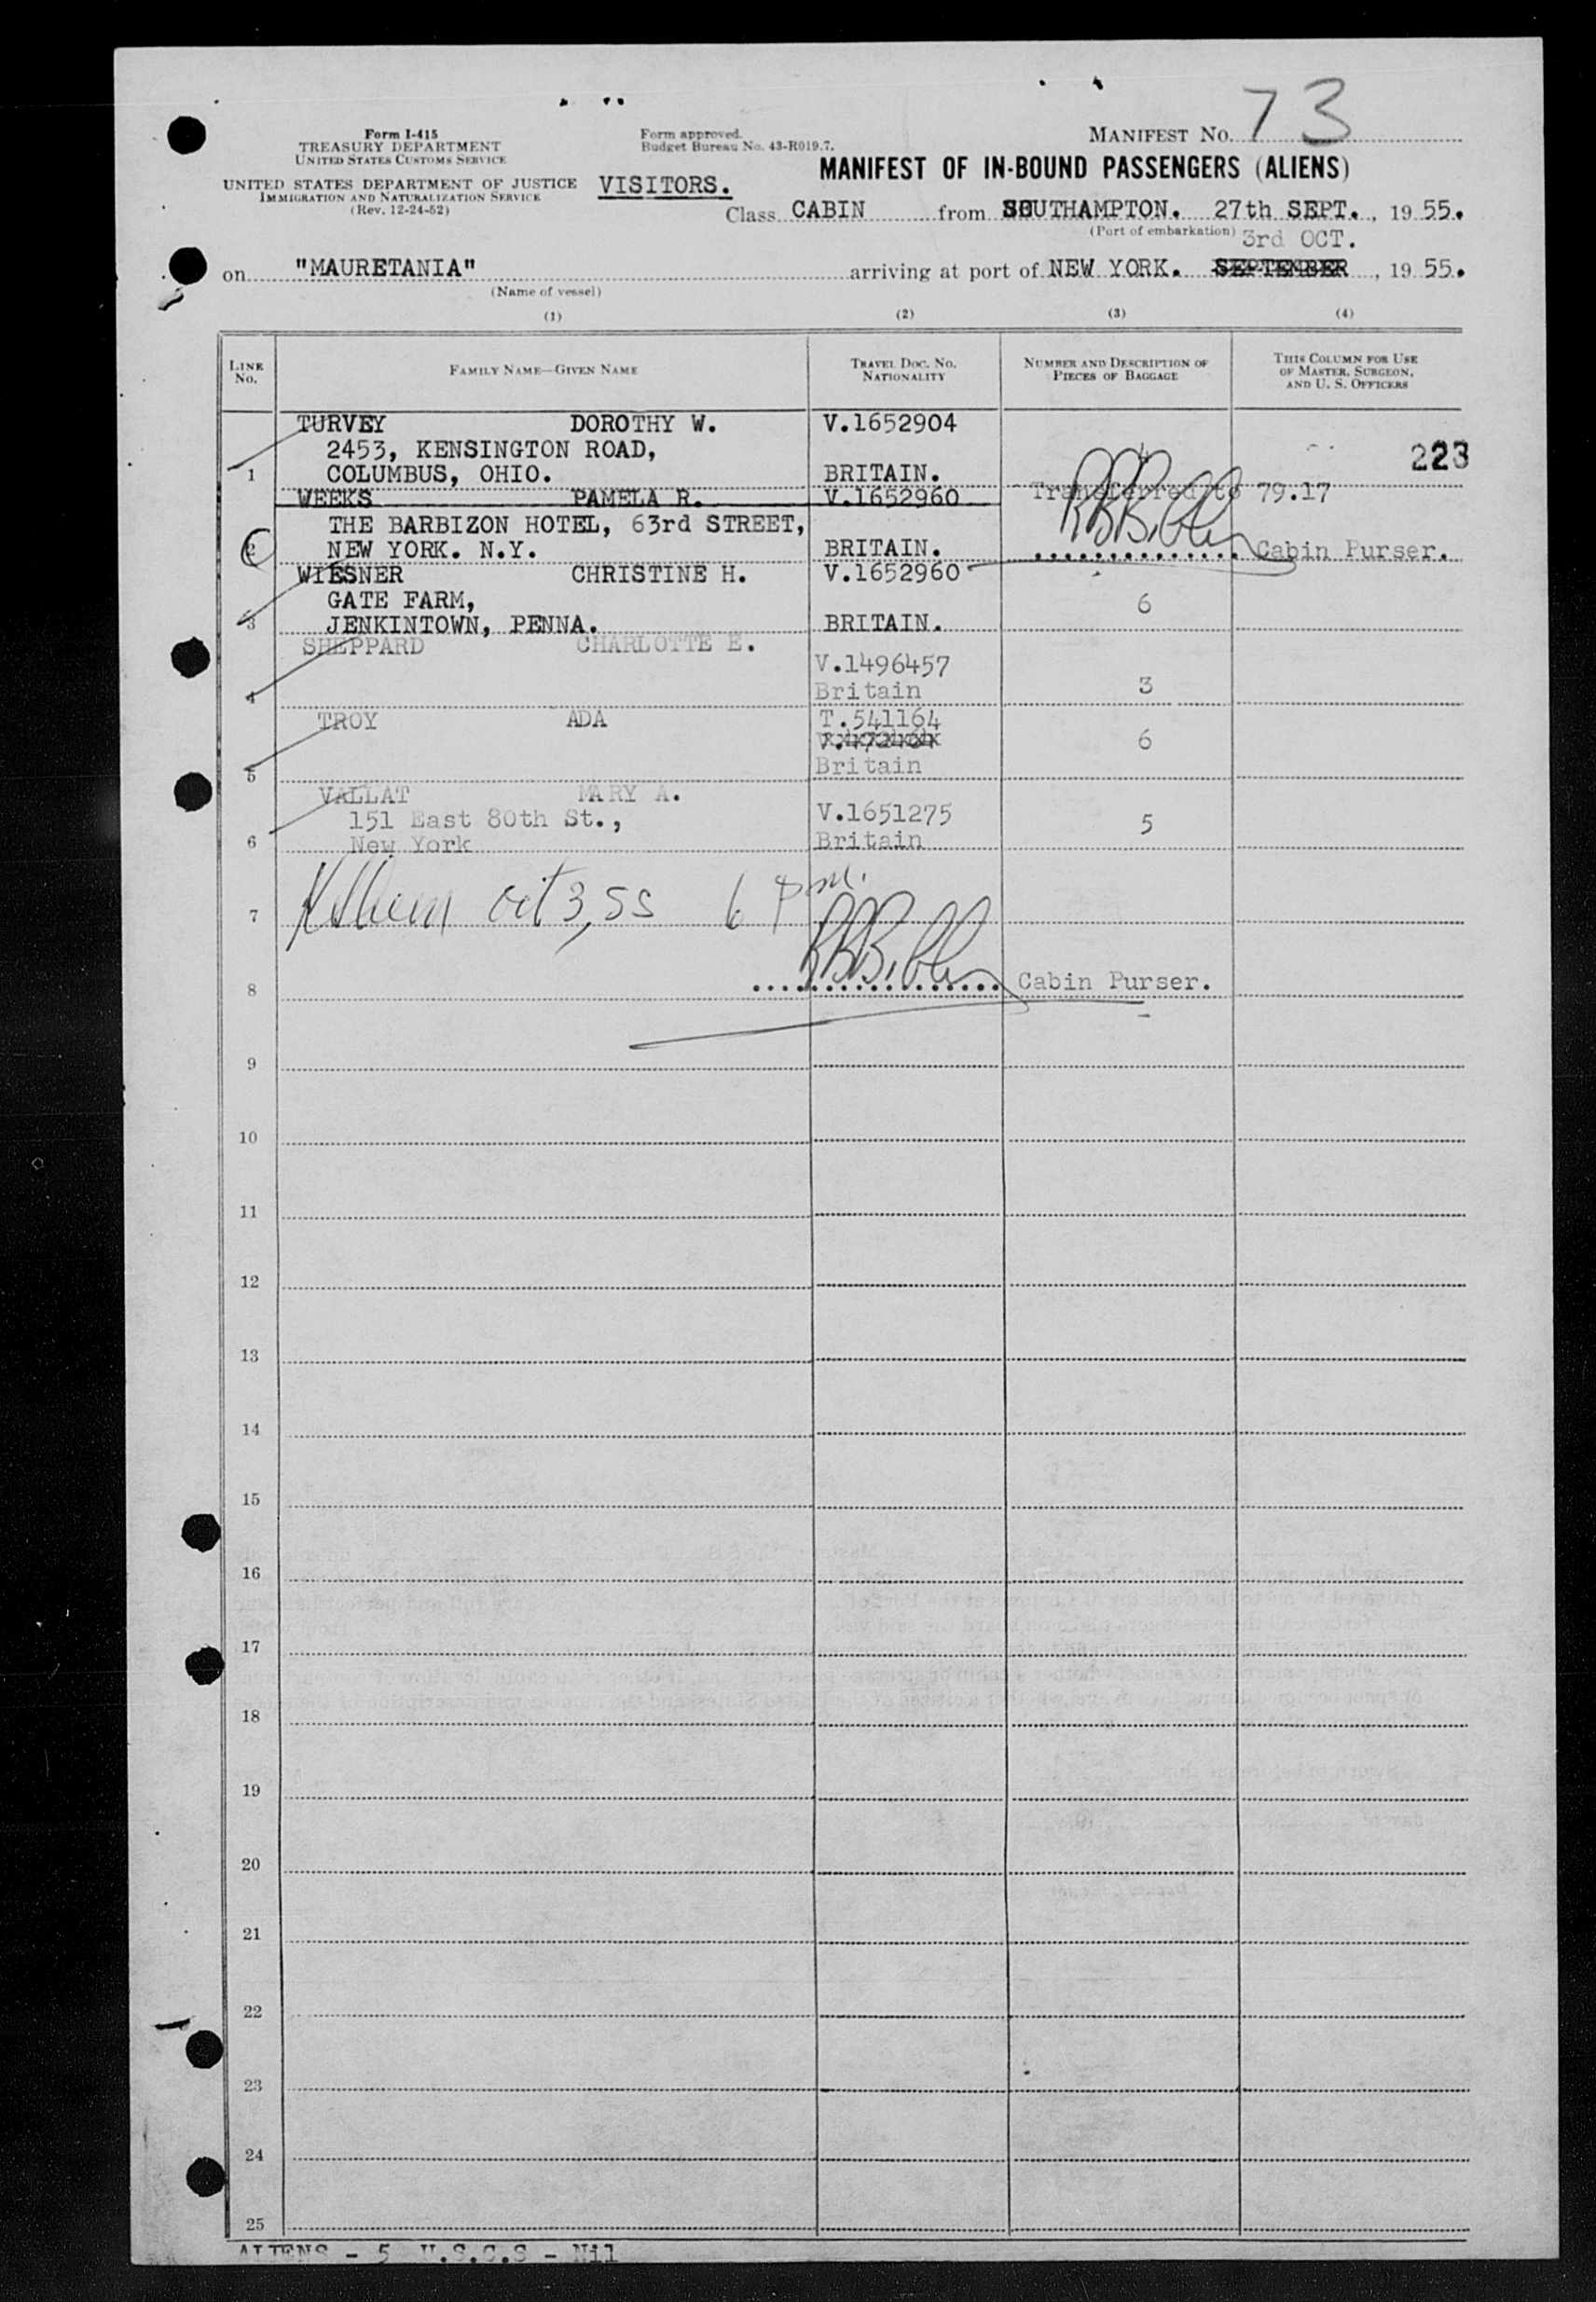 73
Form I-415
TREASURY DEPARTMENT
UNITED STATES CUSTOMS SERVICE
Form approved.
Budget Bureau No. 43-R019.7.
MANIFEST NO.
MANIFEST OF IN-BOUND PASSENGERS (ALIENS)
UNITED STATES DEPARTMENT OF JUSTICE
IMMIGRATION AND NATURALIZATION SERVICE
(Rev. 12-24-52)
VISITORS.
Class CABIN from SOUTHAMPTON. 27th SEPT., 1955.
(Port of embarkation) 3rd OCT.
on "MAURETANIA" arriving at port of NEW YORK. SEPTEMBER, 1955.
(Name of vessel)
(1) (2) (3) (4)
LINE No. FAMILY NAME—GIVEN NAME TRAVEL DOC. NO. NATIONALITY NUMBER AND DESCRIPTION OF PIECES OF BAGGAGE THIS COLUMN FOR USE OF MASTER, SURGEON, AND U. S. OFFICERS
TURVEY DOROTHY W. V.1652904
2453, KENSINGTON ROAD, 223
1 COLUMBUS, OHIO. BRITAIN.
WEEKS PAMELA R. V.1652960 Transferred to 79.17
THE BARBIZON HOTEL, 63rd STREET,
2 NEW YORK. N.Y. BRITAIN. Cabin Purser.
WIESNER CHRISTINE H. V.1652960
GATE FARM, 6
3 JENKINTOWN, PENNA. BRITAIN.
SHEPPARD CHARLOTTE E.
V.1496457
4 Britain 3
TROY ADA T.541164
6
5 Britain
VALLAT MARY A.
151 East 80th St., V.1651275 5
6 New York Britain
7 Oct 3, 55 6 pm.
8 Cabin Purser.
9
10
11
12
13
14
15
16
17
18
19
20
21
22
23
24
25
ALIENS - 5 U.S.C.S - Nil